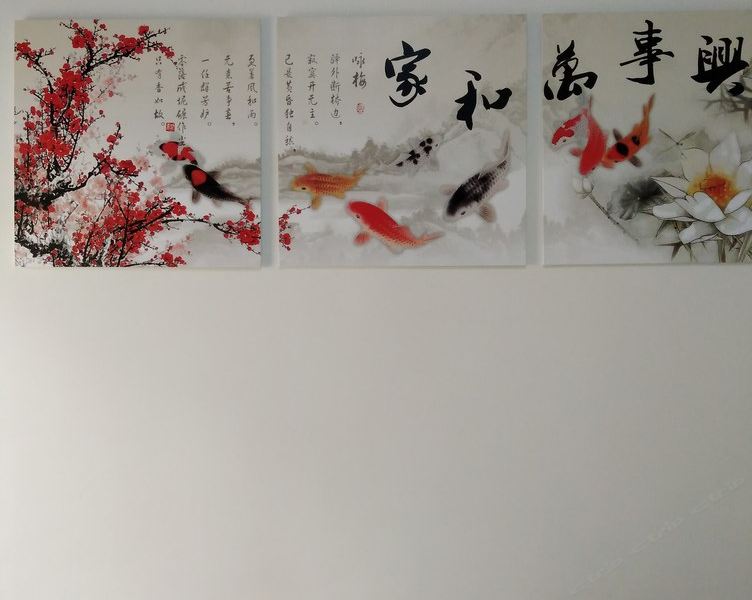 家和萬事興
咏梅
驿外断桥边，
寂寞开无主。
已是黄昏独自愁，
更著风和雨。
无意苦争春，
一任群芳妒。
零落成泥碾作尘
只有香如故。